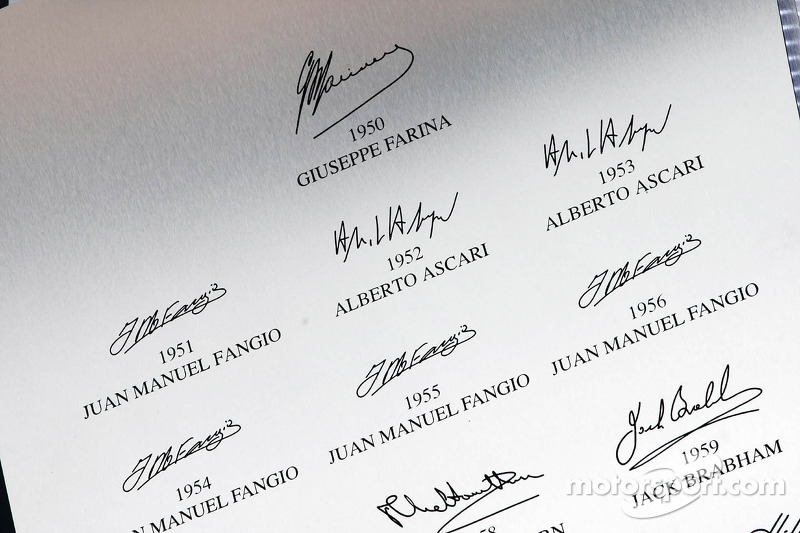 1950
GIUSEPPE FARINA
1951
JUAN MANUEL FANGIO
1952
ALBERTO ASCARI
1953
ALBERTO ASCARI
1954
JUAN MANUEL FANGIO
1955
JUAN MANUEL FANGIO
1956
JUAN MANUEL FANGIO
58
RN
Jack Brabh
1959
JACK BRABHAM
motorsport.com